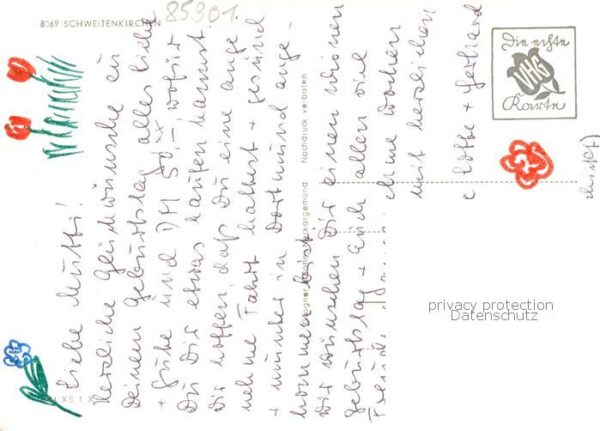 85301
8069 SCHWEITENKIRCHEN
Die echte
VHG
Karte
Liebe Mutti!
Herzliche Glückwünsche zu
Deinem Geburtstag alles liebe
+ Gute und DM 50.–, wofür
Du Dir etwas kaufen kannst
Wir hoffen, daß Du eine ange
nehme Fahrt hattest + gesund
+ munter in Dortmund ange-
kommen bist.
Wir wünschen Dir einen schönen
Geburtstag + Euch allen viel
Freude
schöne Wochen
mit herzlichen
Lotte + Gerhard
Nachdruck verboten
privacy protection
Datenschutz